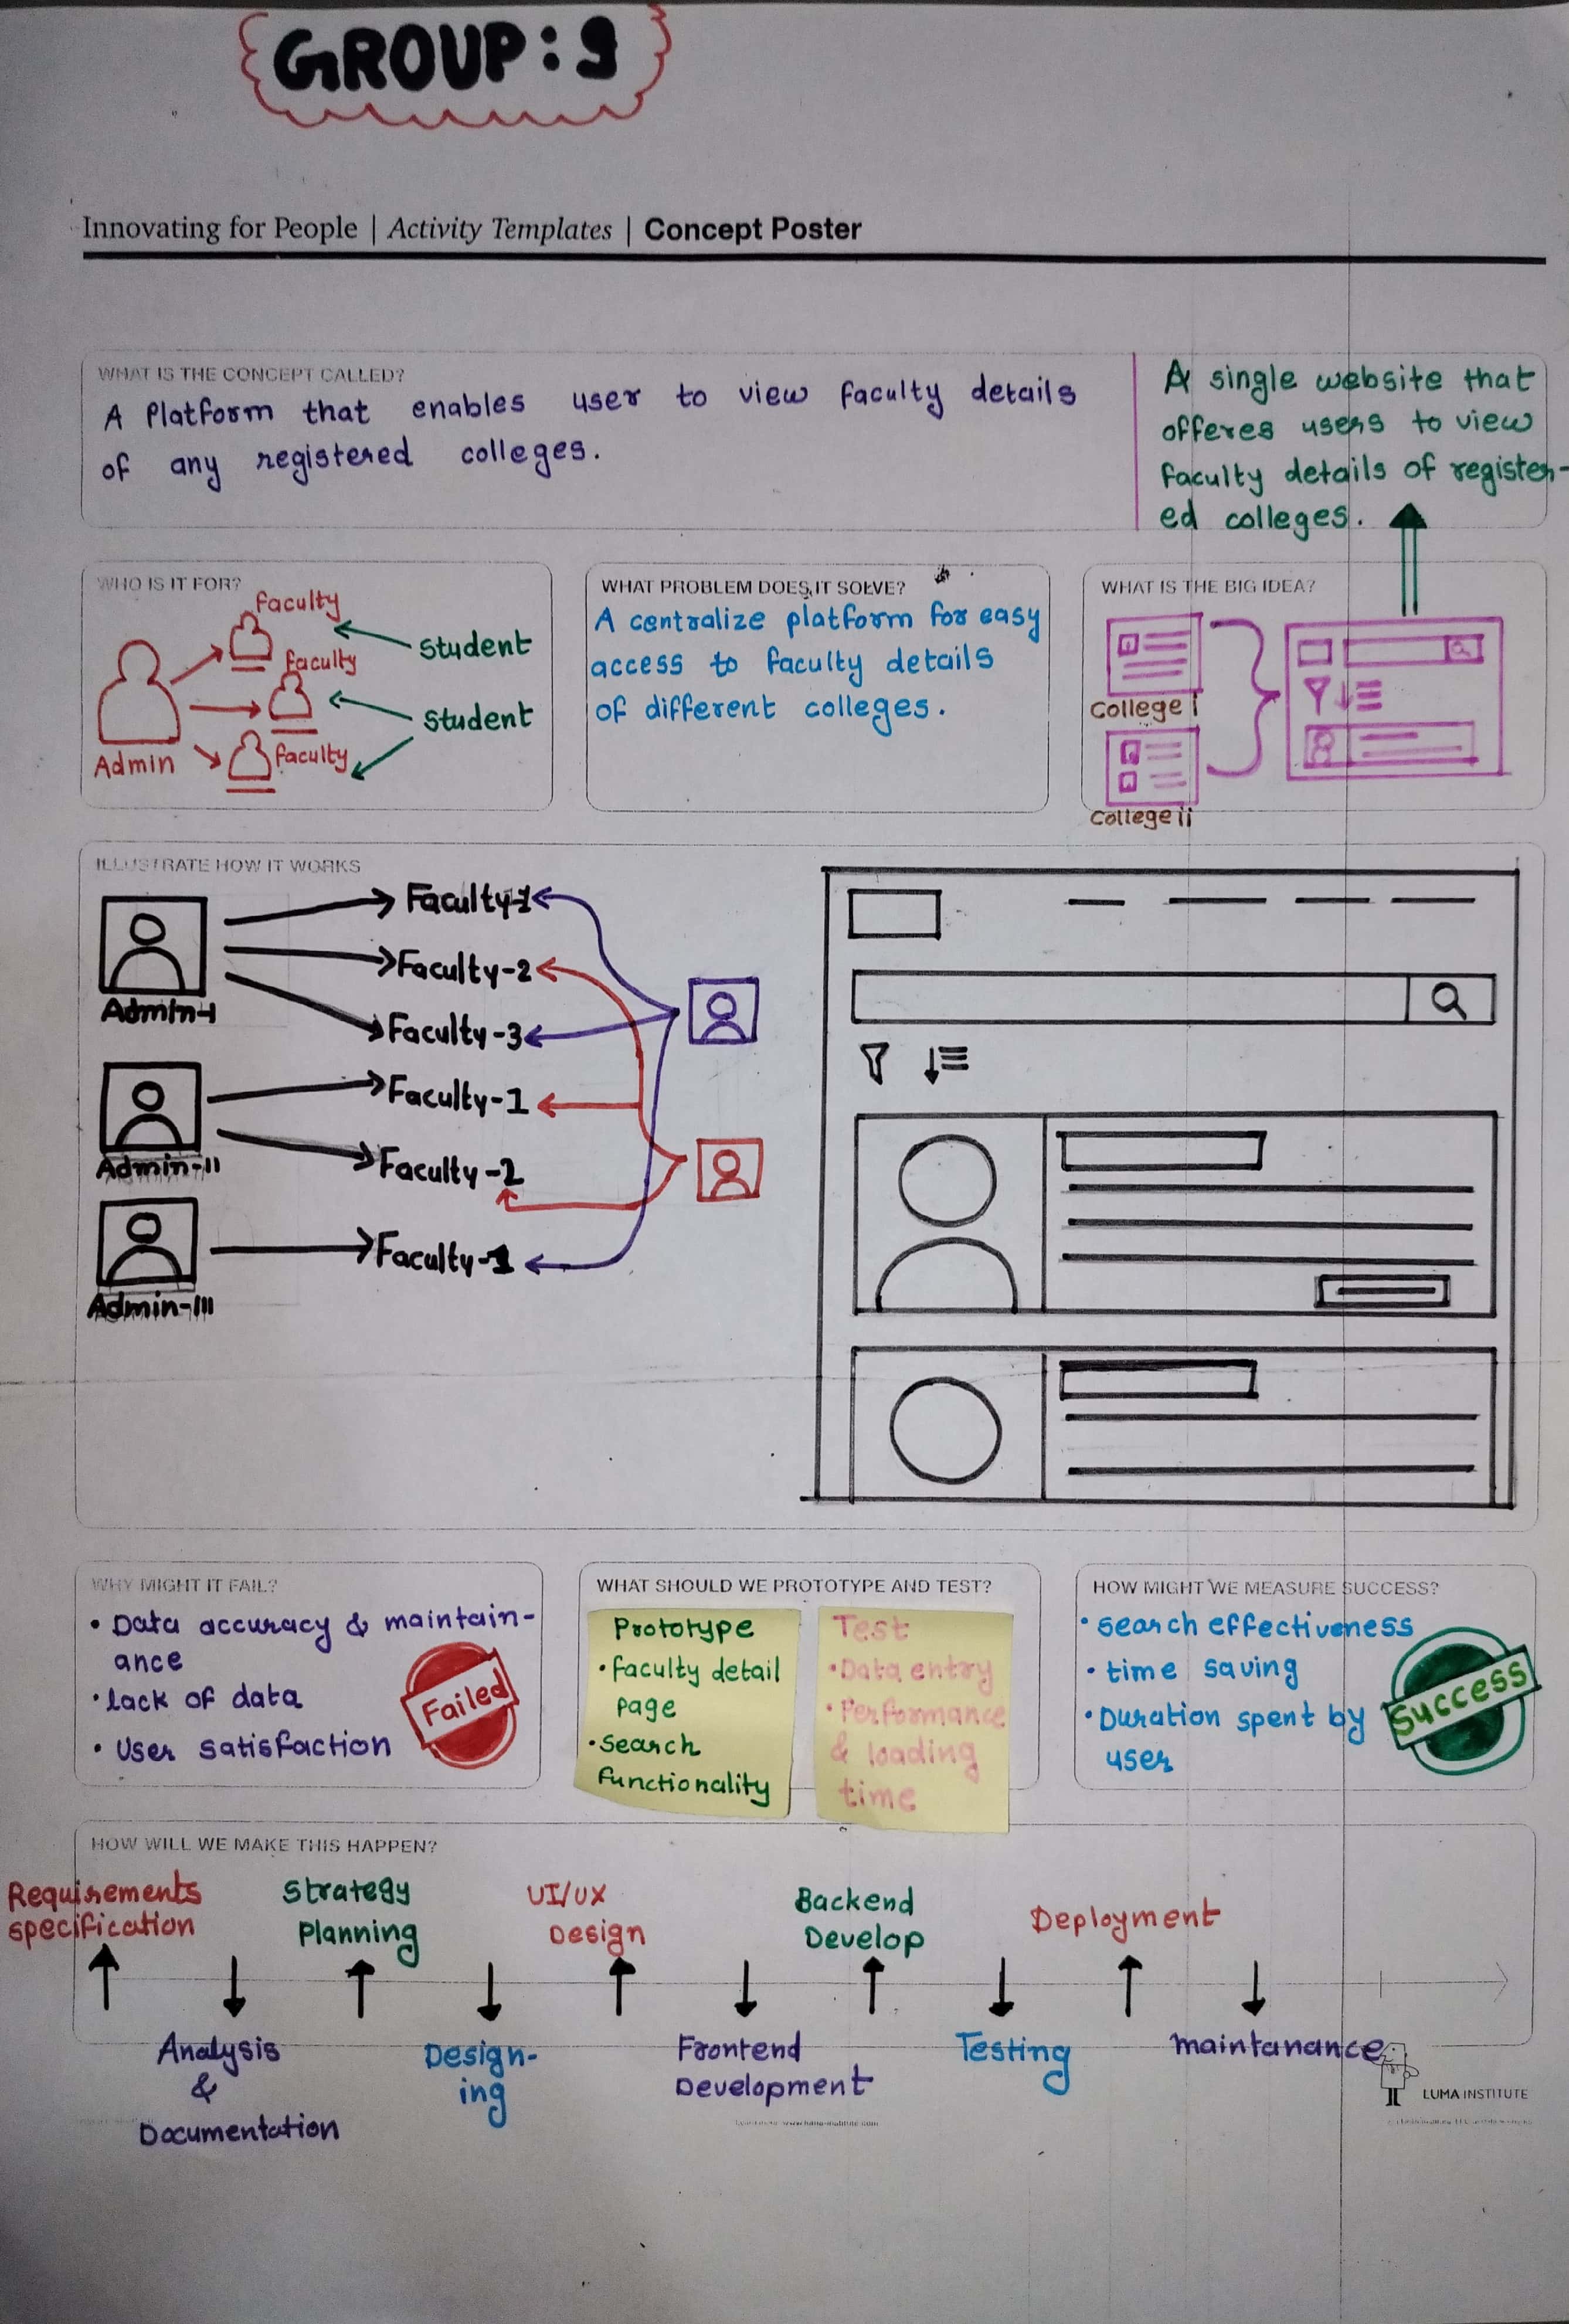 GROUP : 9
Innovating for People | Activity Templates | Concept Poster
WHAT IS THE CONCEPT CALLED?
A Platform that enables user to view faculty details
of any registered colleges.
A single website that
offeres users to view
faculty details of register-
ed colleges.
WHO IS IT FOR?
faculty
student
faculty
student
Admin
faculty
WHAT PROBLEM DOES IT SOLVE?
A centralize platform for easy
access to faculty details
of different colleges.
WHAT IS THE BIG IDEA?
College I
College ii
ILLUSTRATE HOW IT WORKS
Faculty-1
Faculty-2
Admin-I
Faculty-3
Faculty-1
Admin-II
Faculty-2
Faculty-1
Admin-III
WHY MIGHT IT FAIL?
• Data accuracy & maintain-
ance
• lack of data
• User satisfaction
Failed
WHAT SHOULD WE PROTOTYPE AND TEST?
Prototype
• faculty detail
page
• search
functionality
Test
• Data entry
• Performance
& loading
time
HOW MIGHT WE MEASURE SUCCESS?
• search effectiveness
• time saving
• Duration spent by
user
Success
HOW WILL WE MAKE THIS HAPPEN?
Requirements
specification
Strategy
Planning
UI/UX
Design
Backend
Develop
Deployment
Analysis
&
Documentation
Design-
ing
Frontend
Development
Testing
maintanance
LUMA INSTITUTE